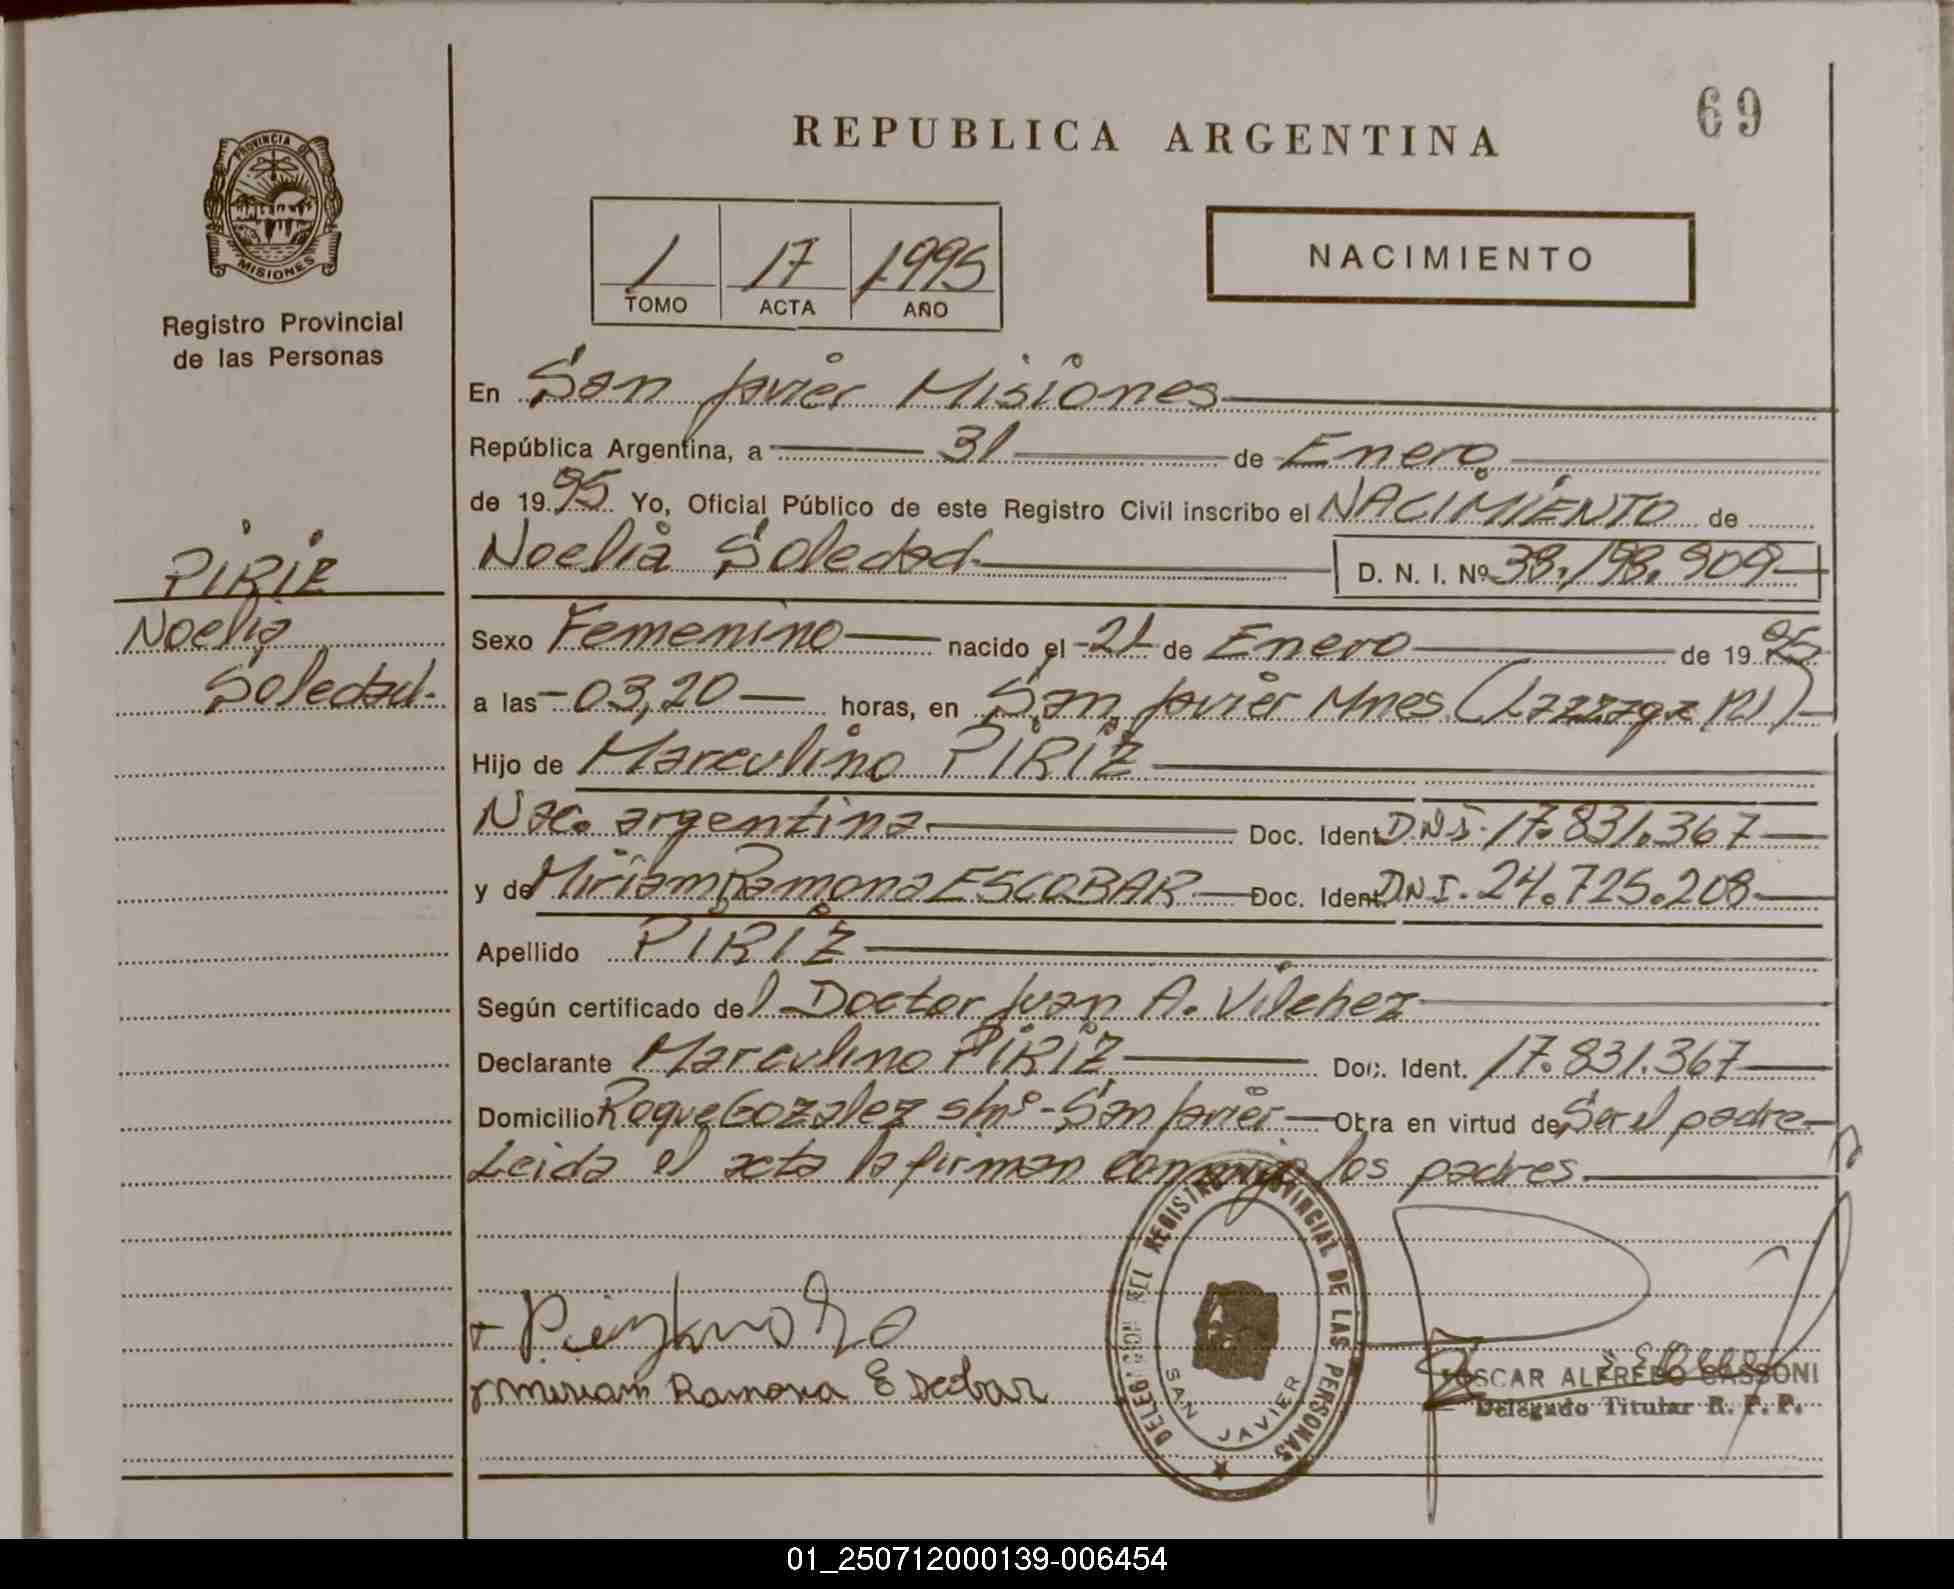 69
REPUBLICA ARGENTINA
PROVINCIA DE
MISIONES
Registro Provincial
de las Personas
1 17 1995
TOMO ACTA AÑO
NACIMIENTO
En San Javier Misiones
República Argentina, a 31 de Enero
de 1995 Yo, Oficial Público de este Registro Civil inscribo el NACIMIENTO de
PIRIZ
Noelia
Soledad
Noelia Soledad D. N. I. Nº 38.198.909
Sexo Femenino nacido el 21 de Enero de 1995
a las 03,20 horas, en San Javier Mnes.
Hijo de Marculino PIRIZ
Nac. argentina Doc. Ident. D.N.I. 17.831.367
y de Miriam Ramona ESCOBAR Doc. Ident. D.N.I. 24.725.208
Apellido PIRIZ
Según certificado del Doctor Juan A. Vilchez
Declarante Marculino PIRIZ Doc. Ident. 17.831.367
Domicilio Roque Gozalez s/nº - San Javier Obra en virtud de Ser el padre
Leida el acta la firman conmigo los padres
Miriam Ramona Escobar
DELEGACION DEL REGISTRO PROVINCIAL DE LAS PERSONAS
SAN JAVIER
OSCAR ALFREDO SASSONI
Delegado Titular R. P. P.
01_250712000139-006454